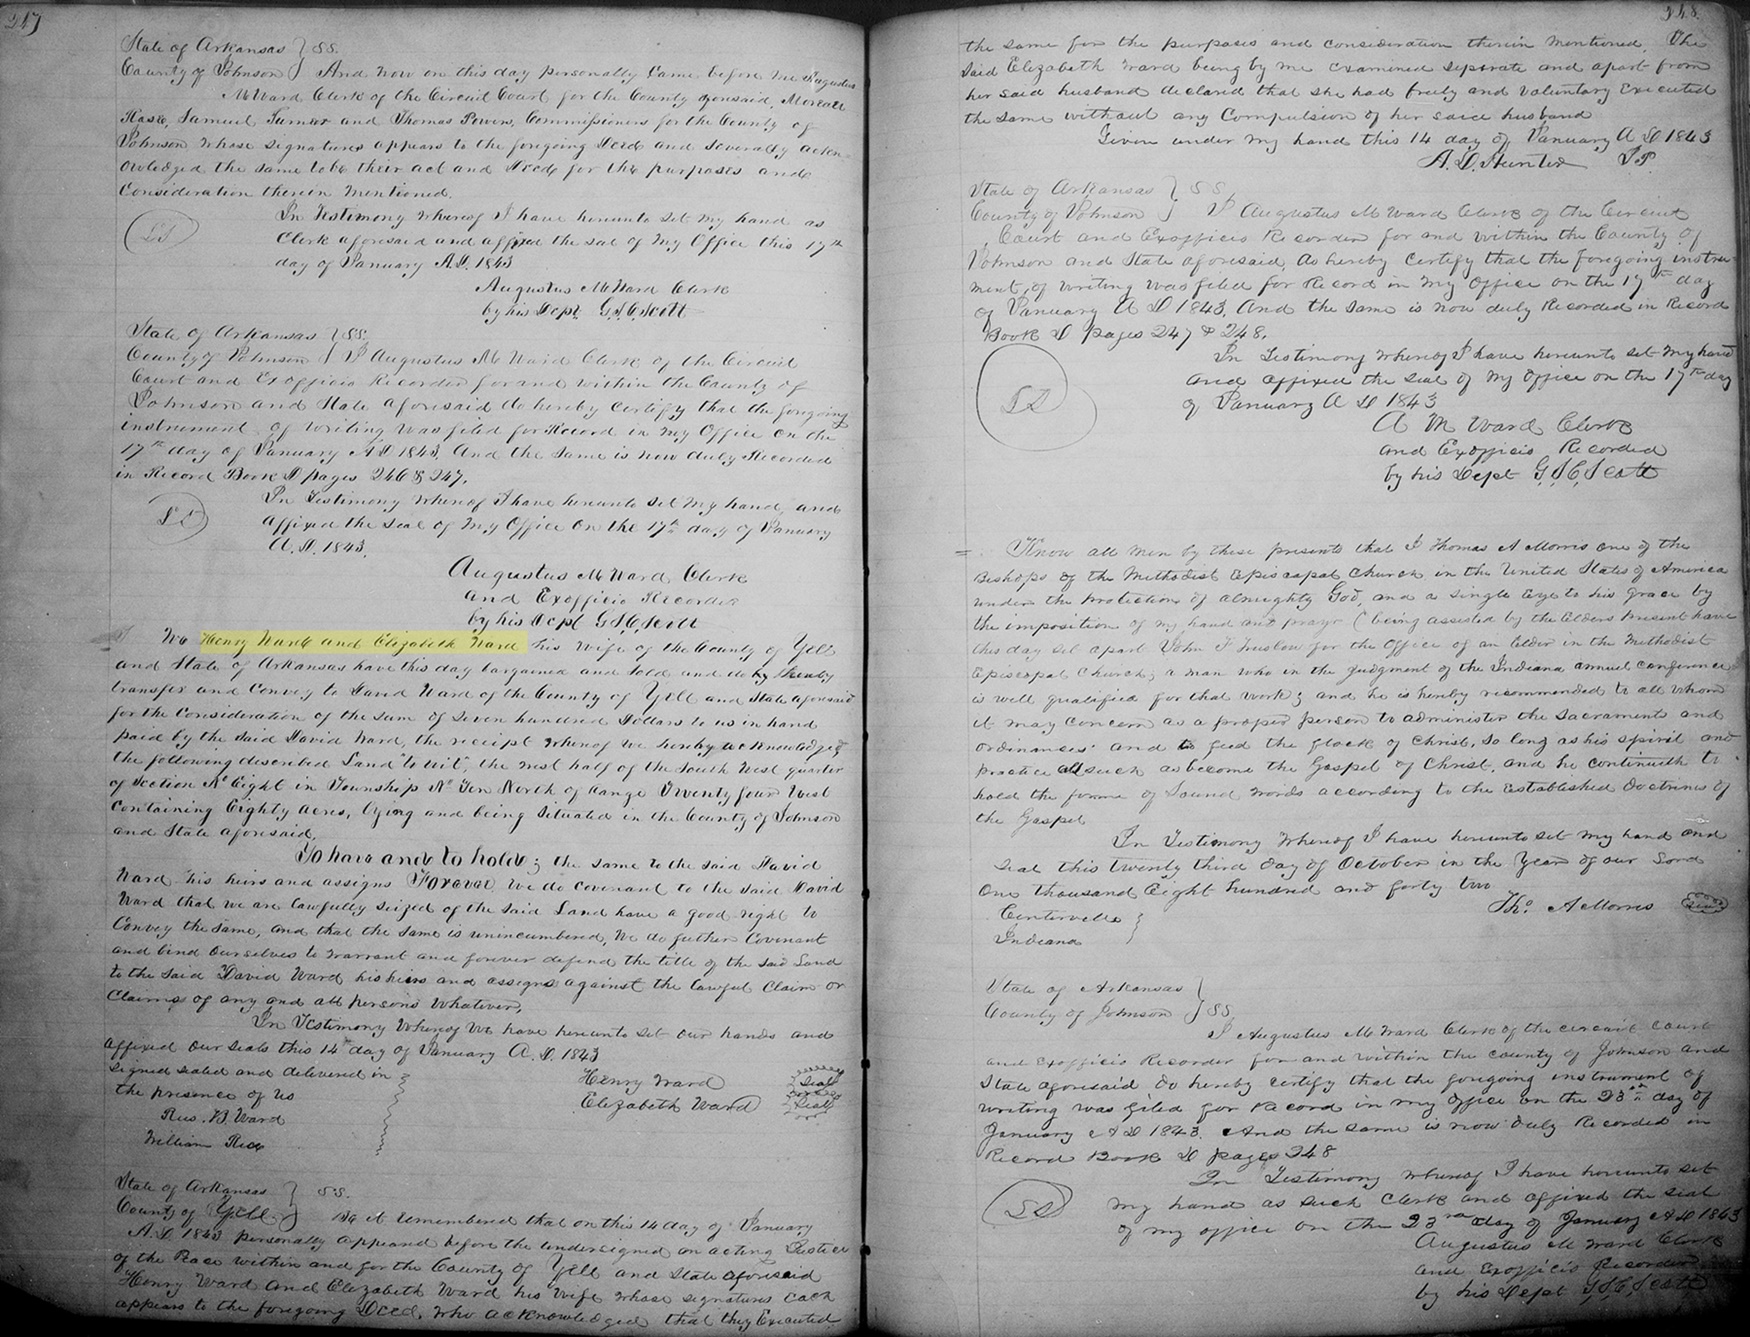 247
State of Arkansas } SS.
County of Johnson } And now on this day personally Came before me Augustus
M Ward Clerk of the Circuit Court for the County aforesaid,
Samuel Turner and Thomas Powers, Commissioners for the County of
Johnson whose signatures appears to the foregoing Deed and severally ackn-
owledged the same to be their act and Deed for the purposes and
Consideration therein mentioned.
In Testimony whereof I have hereunto set my hand as
Clerk aforesaid and affixed the seal of my Office this 17th
day of January A.D. 1843
LS
Augustus M Ward Clerk
by his Dept. G.S.C. Scott
State of Arkansas } SS.
County of Johnson } I Augustus M Ward Clerk of the Circuit
Court and Exofficio Recorder for and within the County of
Johnson and State aforesaid do hereby Certify that the foregoing
instrument of writing was filed for Record in my Office on the
17th day of January A.D. 1843, And the same is now duly Recorded
in Record Book D pages 246 & 247.
In Testimony whereof I have hereunto set my hand, and
affixed the seal of my Office on the 17th day of January
A.D. 1843.
LS
Augustus M Ward Clerk
and Exofficio Recorder
by his Dept G.S.C. Scott
We Henry Ward and Elizabeth Ward his wife of the County of Yell
and State of Arkansas have this day bargained and sold and do by hereby
transfer and Convey to David Ward of the County of Yell and State aforesaid
for the Consideration of the sum of Seven hundred Dollars to us in hand
paid by the said David Ward, the receipt whereof we hereby acknowledged
the following described Land to wit, the west half of the South West quarter
of Section No Eight in Township No Ten North of range Twenty four West
Containing Eighty Acres, lying and being situated in the County of Johnson
and State aforesaid,
To have and to hold; the same to the said David
Ward his heirs and assigns Forever. We do covenant to the said David
Ward that we are lawfully seized of the said Land have a good right to
Convey the same, and that the same is unincumbered, We do futher Covenant
and bind Ourselves to warrant and forever defend the title of the said Land
to the said David Ward his heirs and assigns against the lawful Claim or
Claims of any and all persons whatever,
In Testimony Whereof We have hereunto set our hands and
affixed our seals this 14th day of January A.D. 1843
Signed sealed and delivered in
the presence of us
Henry Ward Seal
Elizabeth Ward Seal
B. Ward
William Rice
State of Arkansas } SS.
County of Yell } Be it remembered that on this 14 day of January
A.D. 1843 personally appeared before the undersigned an acting Justice
of the Peace within and for the County of Yell and State aforesaid
Henry Ward and Elizabeth Ward his wife whose signatures each
appears to the foregoing Deed, who acknowledged that they Executed
248
the same for the purposes and consideration therein mentioned, The
said Elizabeth Ward being by me examined seperate and apart from
her said husband declared that she had freely and voluntary Executed
the same without any Compulsion of her said husband
Given under my hand this 14 day of January A D 1843
A. D. Hunter J.P.
State of Arkansas } SS
County of Johnson } I Augustus M Ward Clerk of the Circuit
Court and Exofficio Recorder for and within the County of
Johnson and State aforesaid, do hereby certify that the foregoing instru-
ment, of writing was filed for Record in my Office on the 17th day
of January A D 1843. And the same is now duly Recorded in Record
Book D pages 247 & 248.
In Testimony whereof I have hereunto set my hand
and affixed the seal of my Office on the 17th day
of January A D 1843
LS
A M Ward Clerk
and Exofficio Recorded
by his Dept G.S.C. Scott
Know all men by these presents that I Thomas A Morris one of the
Bishops of the Methodist Episcapal Church in the United States of America
under the protection of almighty God, and a single Eye to his grace by
the imposition of my hand and prayr (being assisted by the Elders present have
this day set apart John F Truslow for the Office of an Elder in the Methodist
Episcopal Church; a man who in the judgment of the Indiana annuel conference
is well qualified for that work; and he is hereby recommended to all whom
it may concern as a proper person to administer the Sacraments and
ordinances and to feed the flock of Christ, so long as his spirit and
practice all such as become the Gospel of Christ, and he continueth to
hold the forme of Sound words according to the established doctrines of
the Gospel
In Testimony whereof I have hereunto set my hand and
seal this twenty third day of October in the Year of our Lord
One thousand Eight hundred and forty two
Tho. A Morris Seal
Centerville
Indiana
State of Arkansas
County of Johnson } SS.
I Augustus M Ward Clerk of the circuit Court
and Exofficio Recorder for and within the county of Johnson and
State aforesaid do hereby certify that the foregoing instrument of
writing was filed for record in my office on the 23rd day of
January A D 1843. And the same is now duly Recorded in
Record Book D pages 248
In Testimony whereof I have hereunto set
my hand as such Clerk and affixed the seal
of my office on the 23rd day of January A D 1843
LS
Augustus M Ward Clerk
and Exofficio Recorder
by his Dept G.S.C. Scott